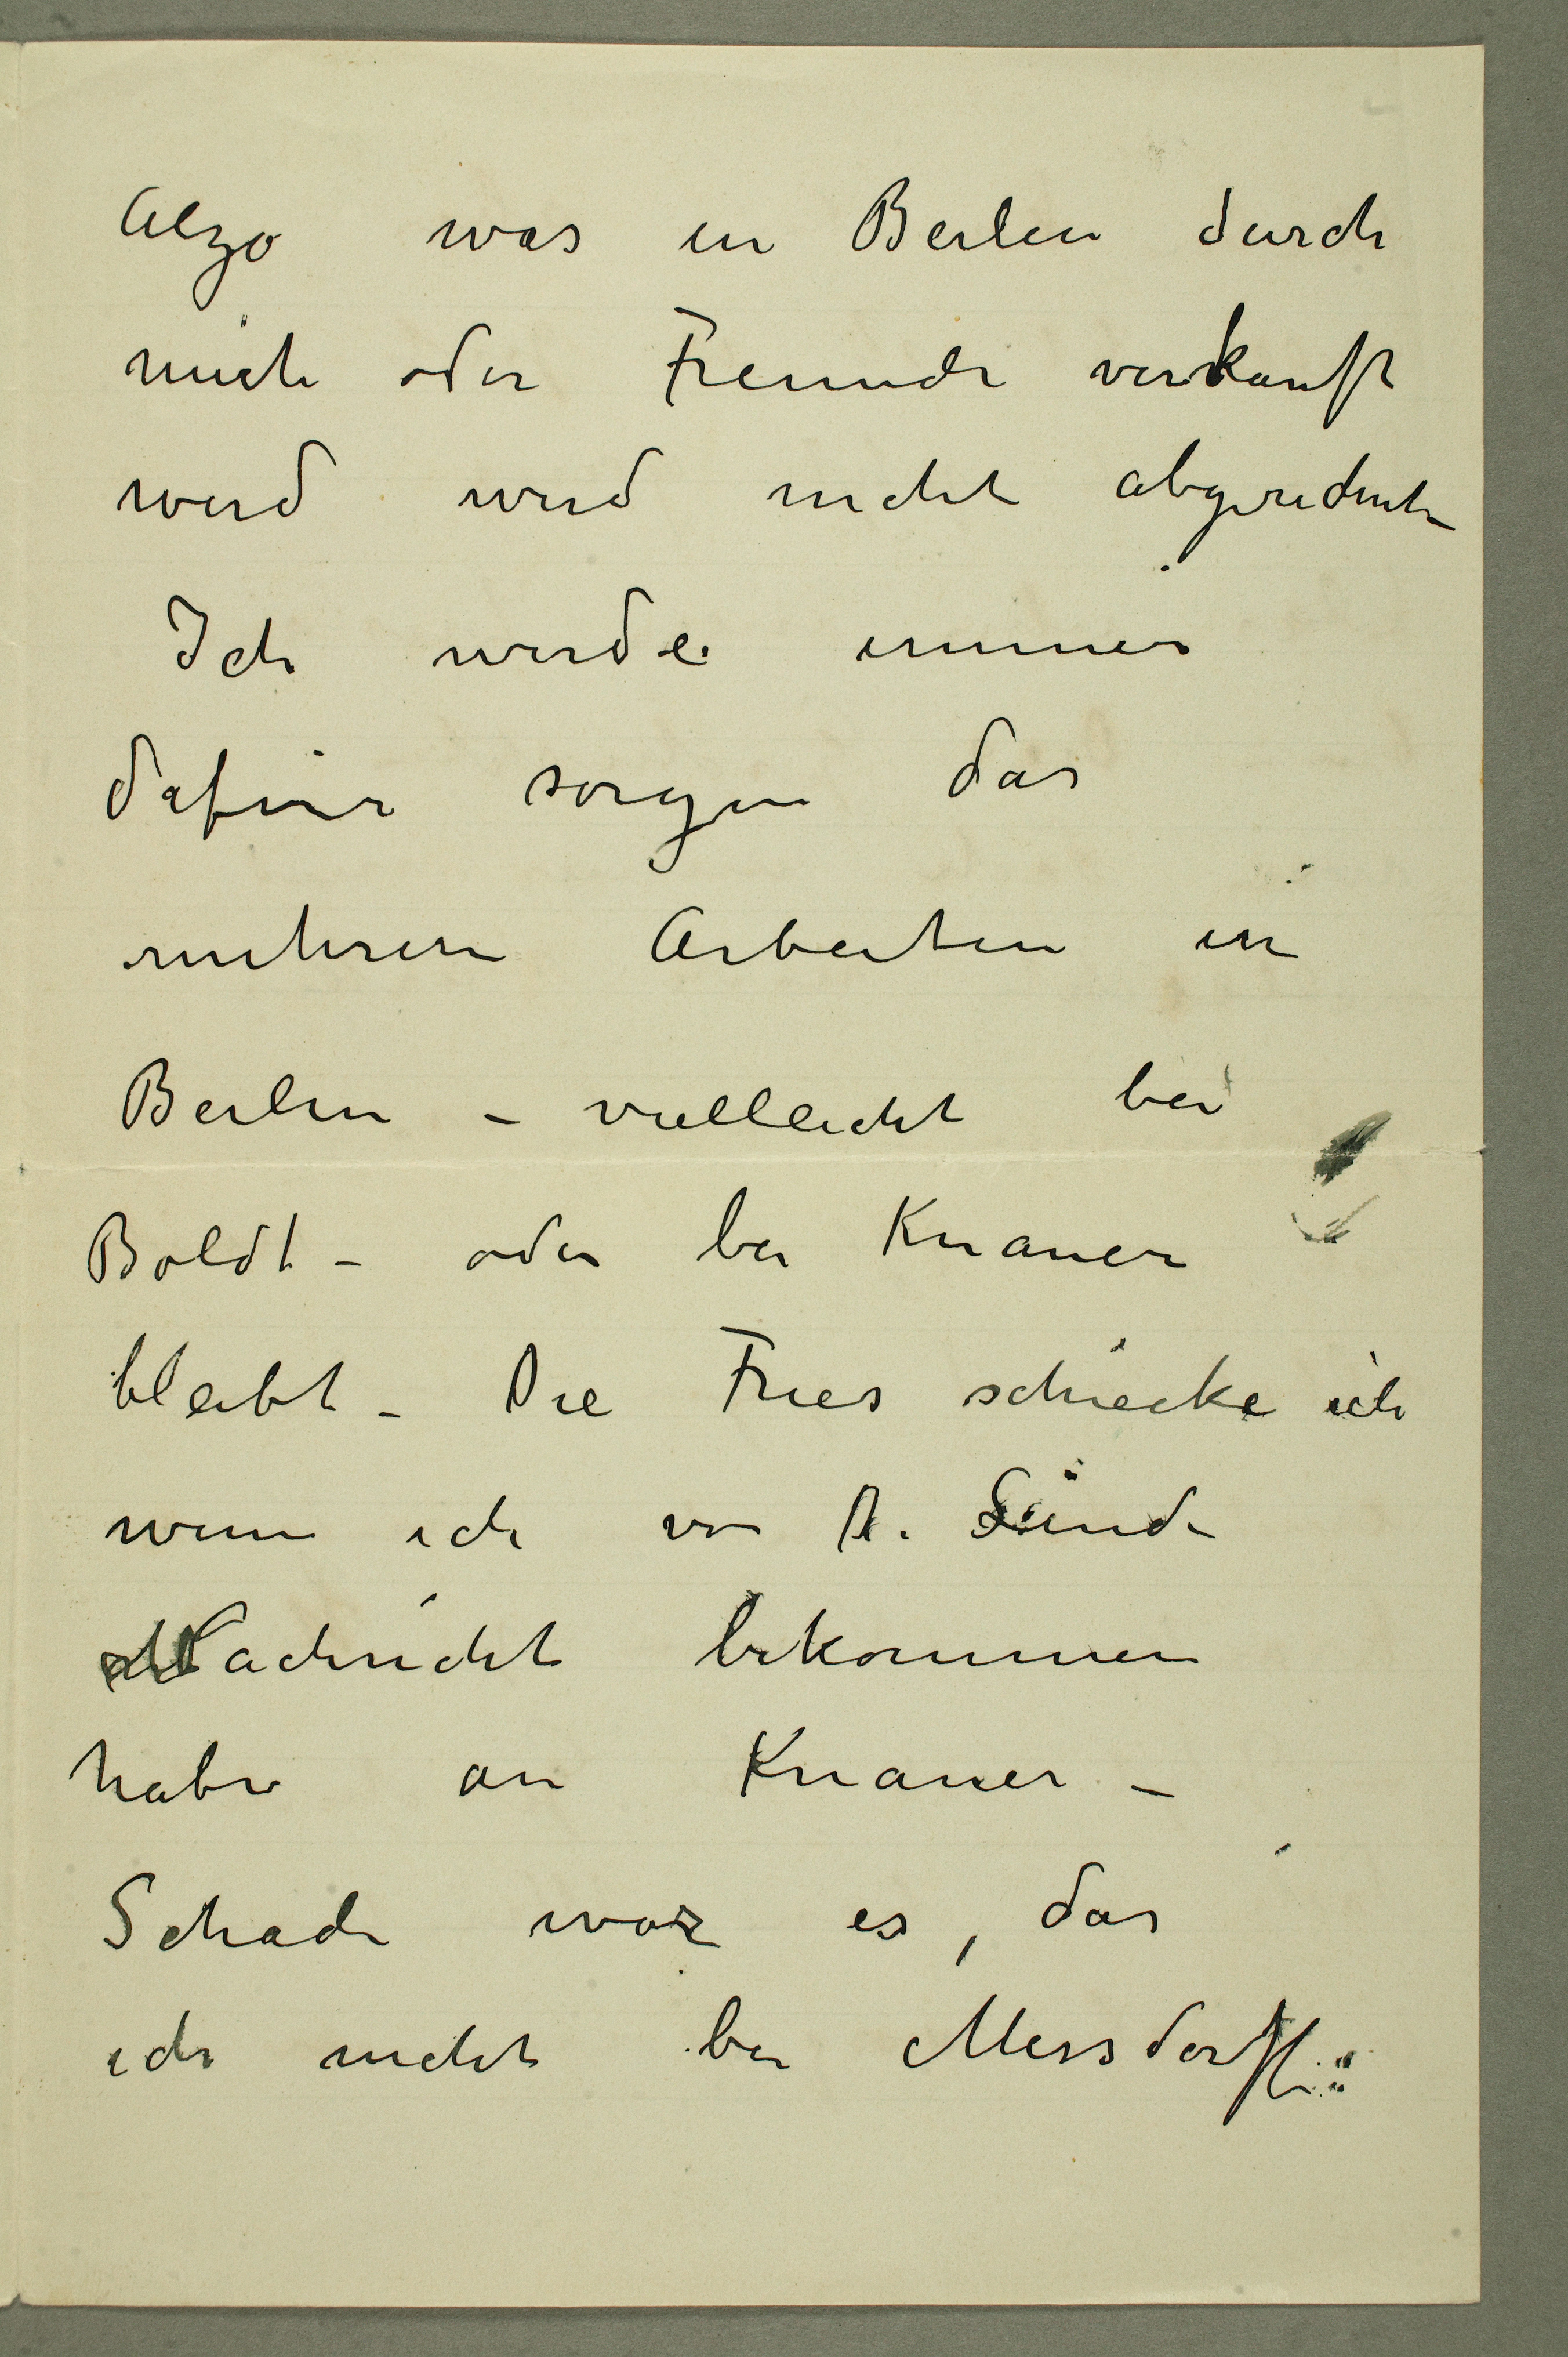 Alzo was in Berlin durch
mich oder Freunde verkauft
wird wird nicht abgerechnet
Ich werde immer
dafür sorgen das
mehrere Arbeiten in
Berlin – vielleicht bei
Boldt – oder bei Knauer
bleibt – Die Fries schiecke ich
wenn ich von D. Linde
Nachricht bekommen
habe an Knauer –
Schade war es, das
ich nicht bei Messdorff